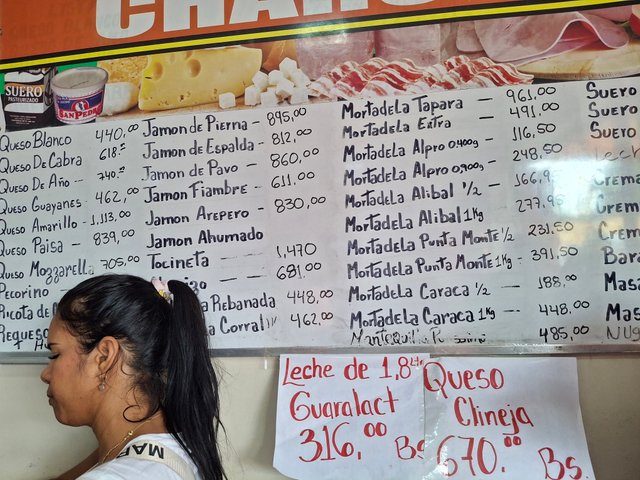 CHARC
SUERO
PASTEURIZADO
SAN PEDRO
Queso Blanco 440,00
Queso De Cabra 618,=
Queso De Año - 740,00
Queso Guayanes 462,00
Queso Amarillo - 1,113,00
Queso Paisa - 839,00
Queso Mozzarella 705,00
Pecorino
Ricota de
Requeso
Jamon de Pierna - 895,00
Jamon de Espalda - 812,00
Jamon de Pavo - 860,00
Jamon Fiambre - 611,00
Jamon Arepero - 830,00
Jamon Ahumado
Tocineta - 1,470
681,00
Rebanada 448,00
Corral 462,00
Mortadela Tapara - 961,00
Mortadela Extra - 491,00
Mortadela Alpro 0.400g - 116,50
Mortadela Alpro 0,900g - 248,50
Mortadela Alibal 1/2 - 166,9
Mortadela Alibal 1Kg - 277,95
Mortadela Punta Monte 1/2 - 231,50
Mortadela Punta Monte 1Kg - 391,50
Mortadela Caraca 1/2 - 188,00
Mortadela Caraca 1Kg - 448,00
485,00
Suero
Suero
Suero
Lech
Crema
Crema
Crem
Bara
Masa
Mas
Leche de 1,8 Lts
Guaralact
316,00 Bs
Queso
Clineja
670.00 Bs.
MAR